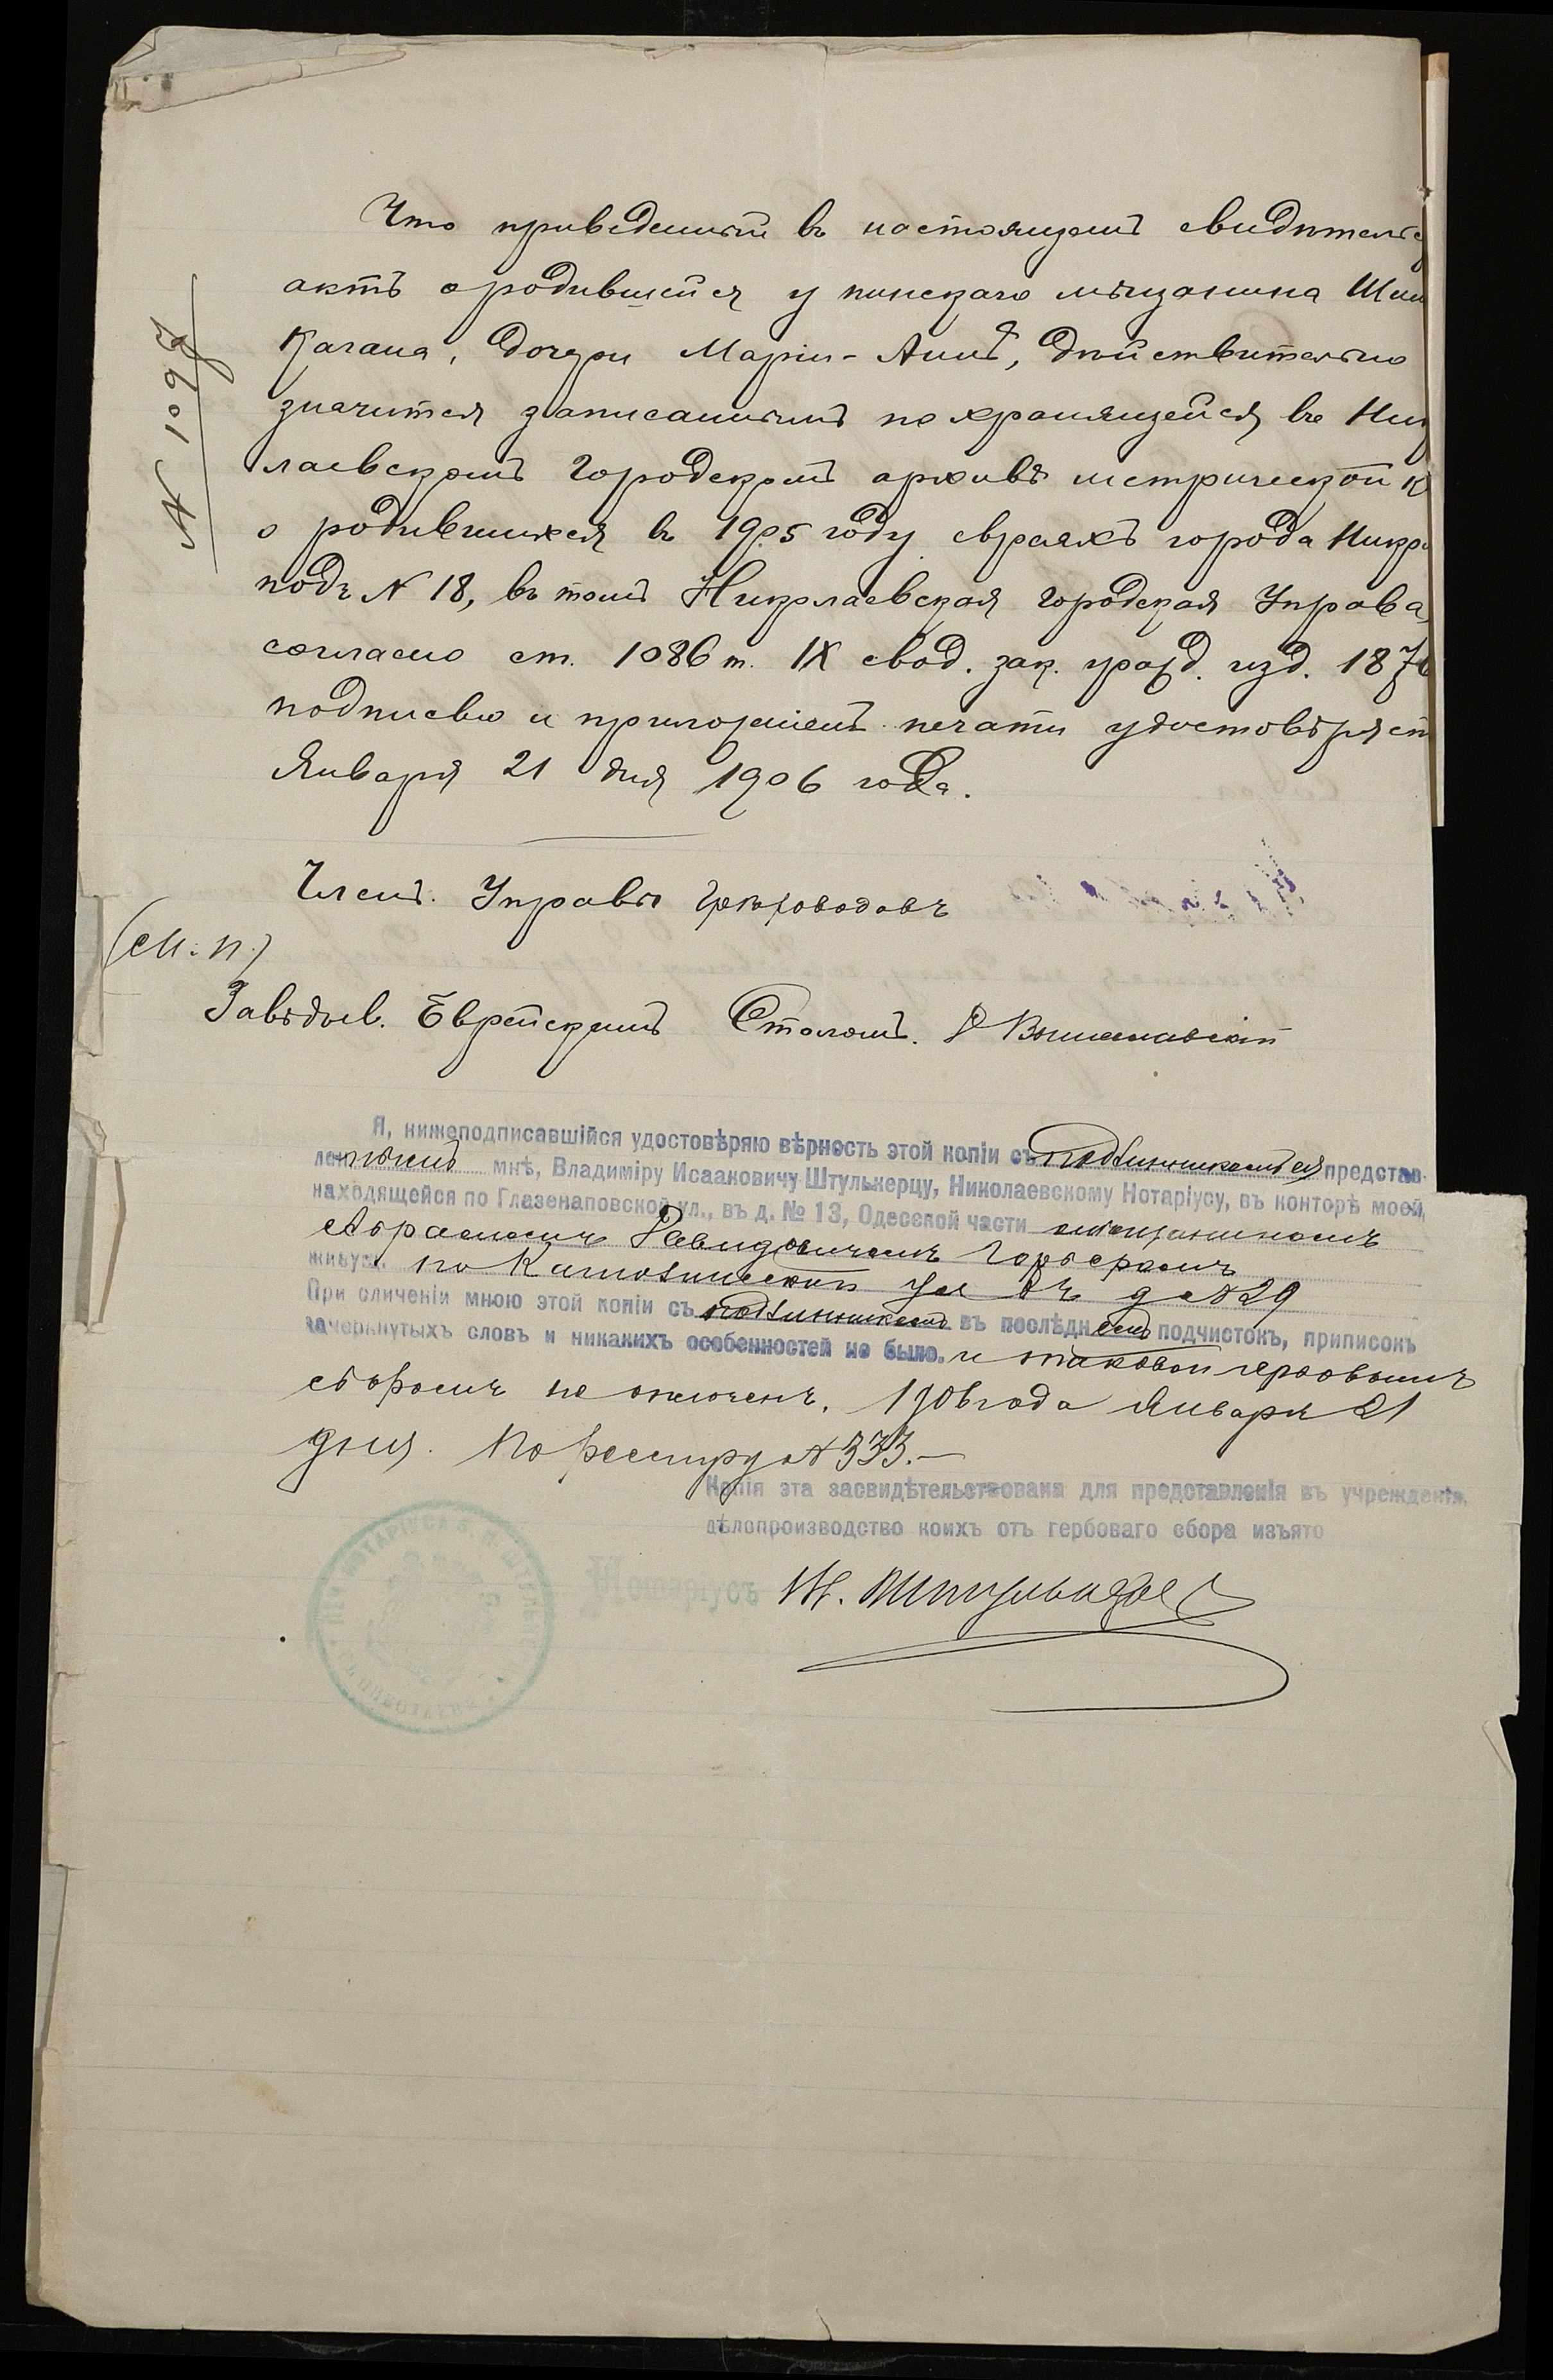 Что приведенный въ настоящемъ свидѣтельс
актъ о родившейся у пинскаго мѣщанина Шим
Кагана, дочери Маріи-Аннѣ, дѣйствительно
значится записаннымъ по хранящейся въ Ник
лаевскомъ Городскомъ архивѣ метрической к
о родившихся въ 1905 году евреяхъ города Никол
подъ № 18, въ томъ Николаевская Городская Управа,
согласно ст. 1086 т. IX свод. зак. гражд. изд. 1876
подписью и приложеніемъ печати удостовѣряет
Января 21 дня 1906 года.
№ 109
Членъ Управы
(М.П.)
Завѣдыв. Еврейскимъ Столомъ.
Я, нижеподписавшійся удостовѣряю вѣрность этой копіи съ подлинникомъ ея представ-
леннымъ мнѣ, Владиміру Исааковичу Штулькерцу, Николаевскому Нотаріусу, въ конторѣ моей,
находящейся по Глазенаповской ул., въ д. № 13, Одесской части мѣщаниномъ
Абрамомъ Давидовичемъ
живущ. по Католической ул въ д № 29
При сличеніи мною этой копіи съ подлинникомъ въ послѣднемъ подчистокъ, приписокъ
зачеркнутыхъ словъ и никакихъ особенностей не было. и таковой гербовымъ
сборомъ не оплоченъ. 1906 года Января 21
дня. По реестру № 333.—
Копія эта засвидѣтельствована для представленія въ учрежденія,
дѣлопроизводство коихъ отъ гербоваго сбора изъято
Нотаріусъ В. Штулькерцъ